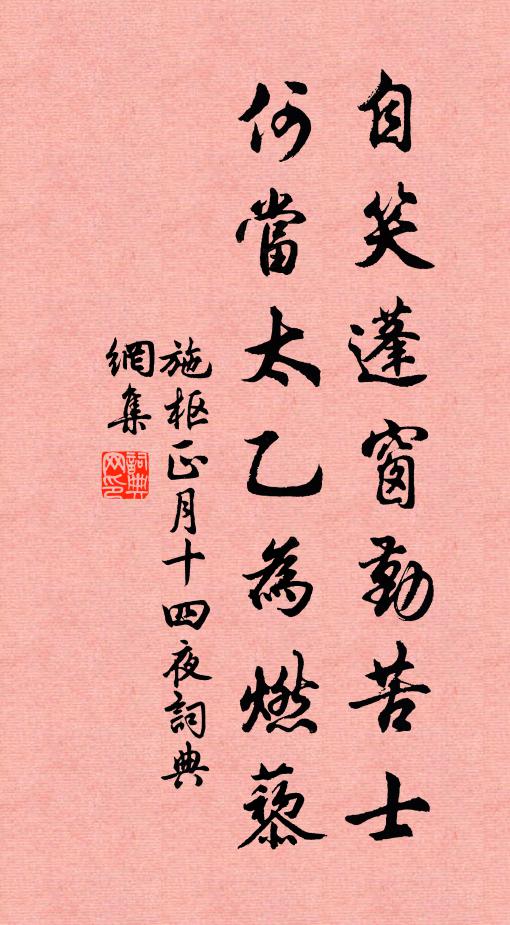 自笑蓬窗勤苦士
何當太乙為燃藜
施枢正月十四夜詞典
網集
詞典网印